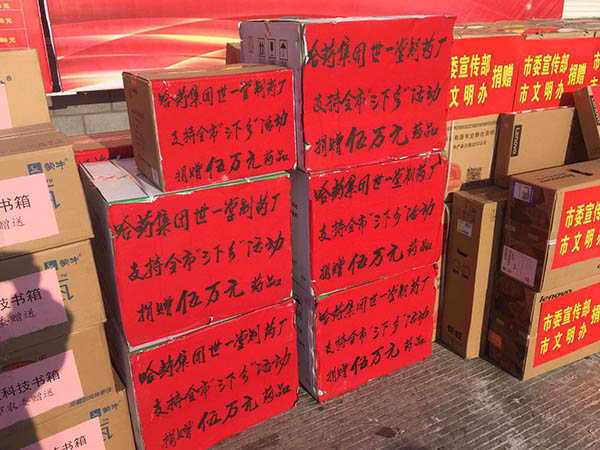 书箱
赠送
蒙牛
技书箱
委赠送
蒙牛
科技书箱
市农委赠送
哈药集团世一堂制药厂
支持全市“三下乡”活动
捐赠伍万元药品
哈药集团世一堂制药厂
支持全市“三下乡”活动
捐赠伍万元药品
哈药集团世一堂制药厂
支持全市“三下乡”活动
捐赠伍万元药品
哈药集团世一堂制药厂
支持全市“三下乡”活动
捐赠伍万元药品
哈药集团世一堂制药厂
支持全市“三下乡”活动
捐赠伍万元药品
哈药集团世一堂制药厂
支持全市“三下乡”活动
捐赠伍万元药品
市委宣传部 捐赠
市文明办
市委宣传部 捐赠
市文明办
lenovo
市委宣
市文明
lenovo
市委宣
市文明